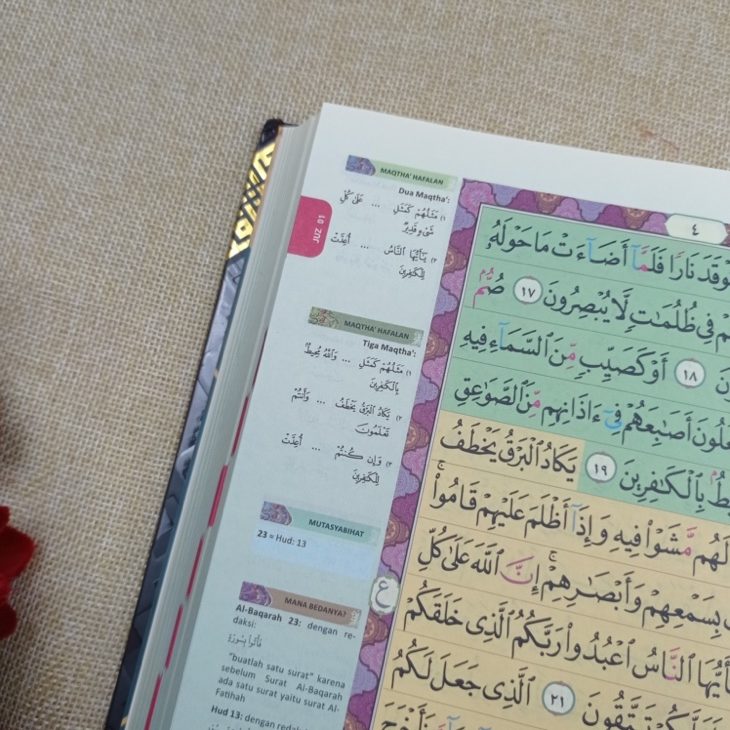 JUZ 01
MAQTHA' HAFALAN
Dua Maqtha':
١) مَثَلُهُمْ كَمَثَلِ ... عَلَىٰ كُلِّ
شَىْءٍ قَدِيرٌ
٢) يَـٰٓأَيُّهَا ٱلنَّاسُ ... أُعِدَّتْ
لِلْكَـٰفِرِينَ
MAQTHA' HAFALAN
Tiga Maqtha':
١) مَثَلُهُمْ كَمَثَلِ ... وَٱللَّهُ مُحِيطٌۢ
بِٱلْكَـٰفِرِينَ
٢) يَكَادُ ٱلْبَرْقُ يَخْطَفُ ... وَأَنتُمْ
تَعْلَمُونَ
٣) وَإِن كُنتُمْ ... أُعِدَّتْ
لِلْكَـٰفِرِينَ
MUTASYABIHAT
23 ≈ Hud: 13
MANA BEDANYA?
Al-Baqarah 23: dengan re-
daksi:
فَأْتُوا۟ بِسُورَةٍ
"buatlah satu surat" karena
sebelum Surat Al-Baqarah
ada satu surat yaitu surat Al-
Fatihah
Hud 13: dengan
٤
نَارًا فَلَمَّآ أَضَآءَتْ مَا حَوْلَهُۥ
فِى ظُلُمَـٰتٍ لَّا يُبْصِرُونَ ١٧ صُمٌّۢ
١٨ أَوْ كَصَيِّبٍ مِّنَ ٱلسَّمَآءِ فِيهِ
أَصَـٰبِعَهُمْ فِىٓ ءَاذَانِهِم مِّنَ ٱلصَّوَٰعِقِ
بِٱلْكَـٰفِرِينَ ١٩ يَكَادُ ٱلْبَرْقُ يَخْطَفُ
لَهُم مَّشَوْا۟ فِيهِ وَإِذَآ أَظْلَمَ عَلَيْهِمْ قَامُوا۟ ۚ
بِسَمْعِهِمْ وَأَبْصَـٰرِهِمْ ۚ إِنَّ ٱللَّهَ عَلَىٰ كُلِّ
ع
ٱلنَّاسُ ٱعْبُدُوا۟ رَبَّكُمُ ٱلَّذِى خَلَقَكُمْ
تَتَّقُونَ ٢١ ٱلَّذِى جَعَلَ لَكُمُ